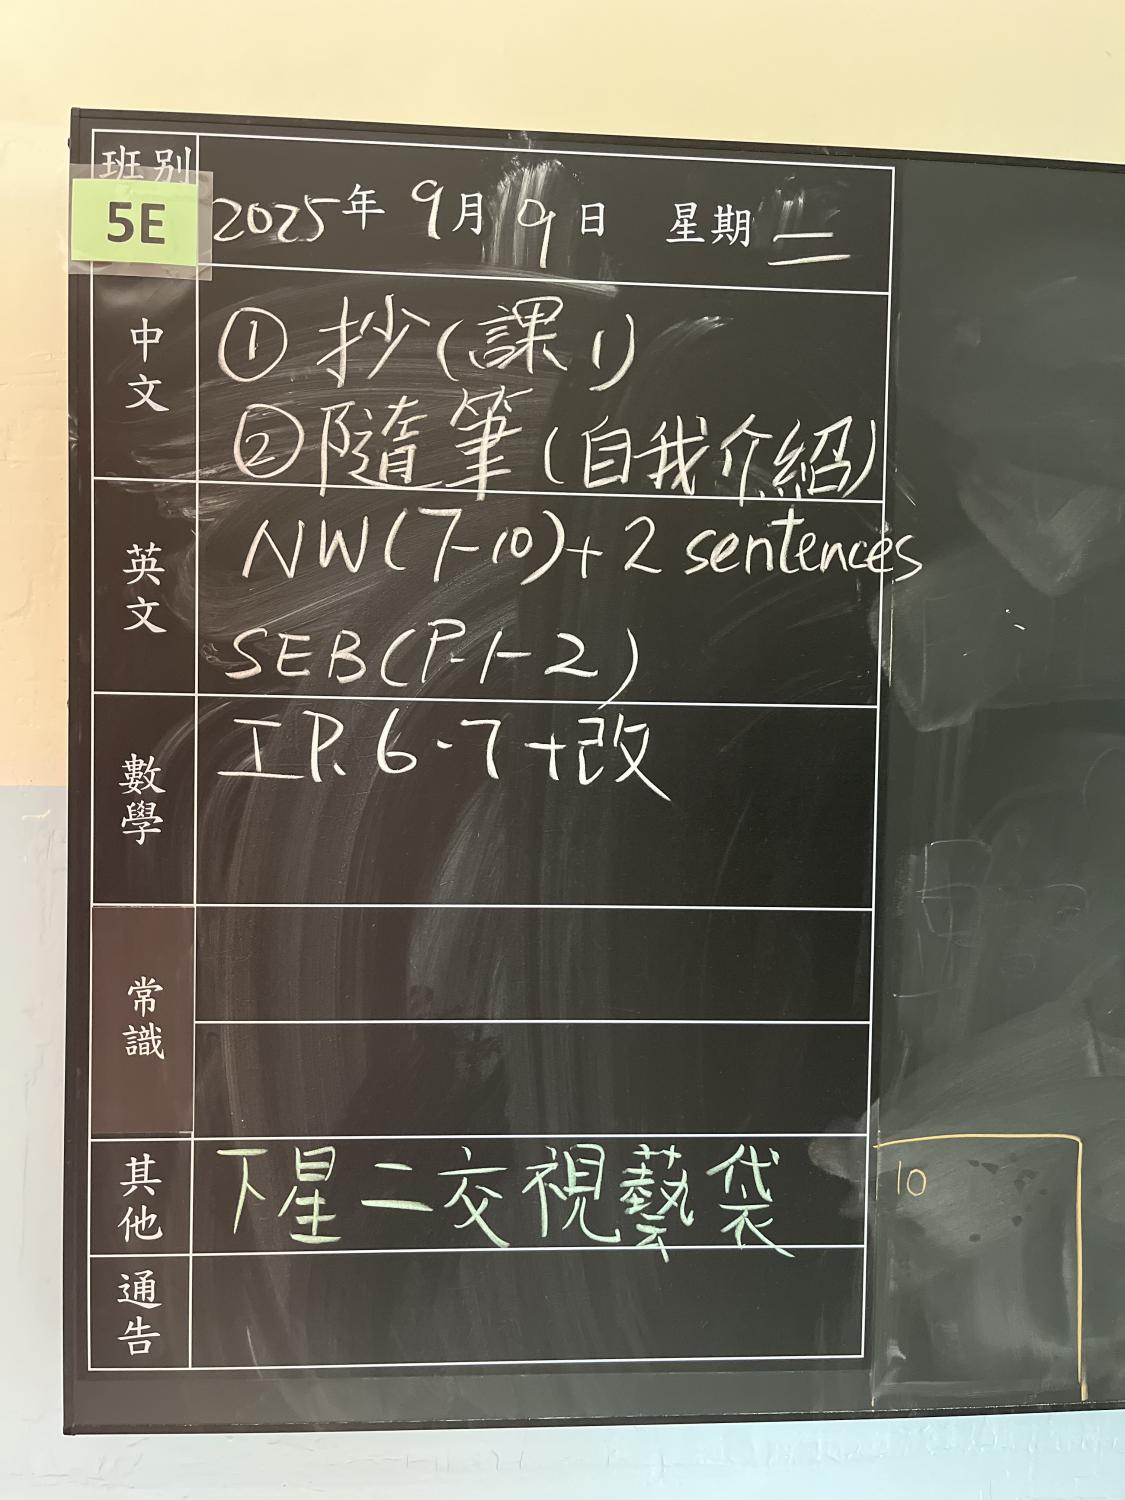 班別
5E
2025年 9月 9日 星期二
中文
① 抄(課1)
② 隨筆(自我介紹)
英文
NW(7-10)+ 2 sentences
SEB(P.1-2)
數學
工P.6-7+改
常識
其他
下星二交視藝袋
10
通告